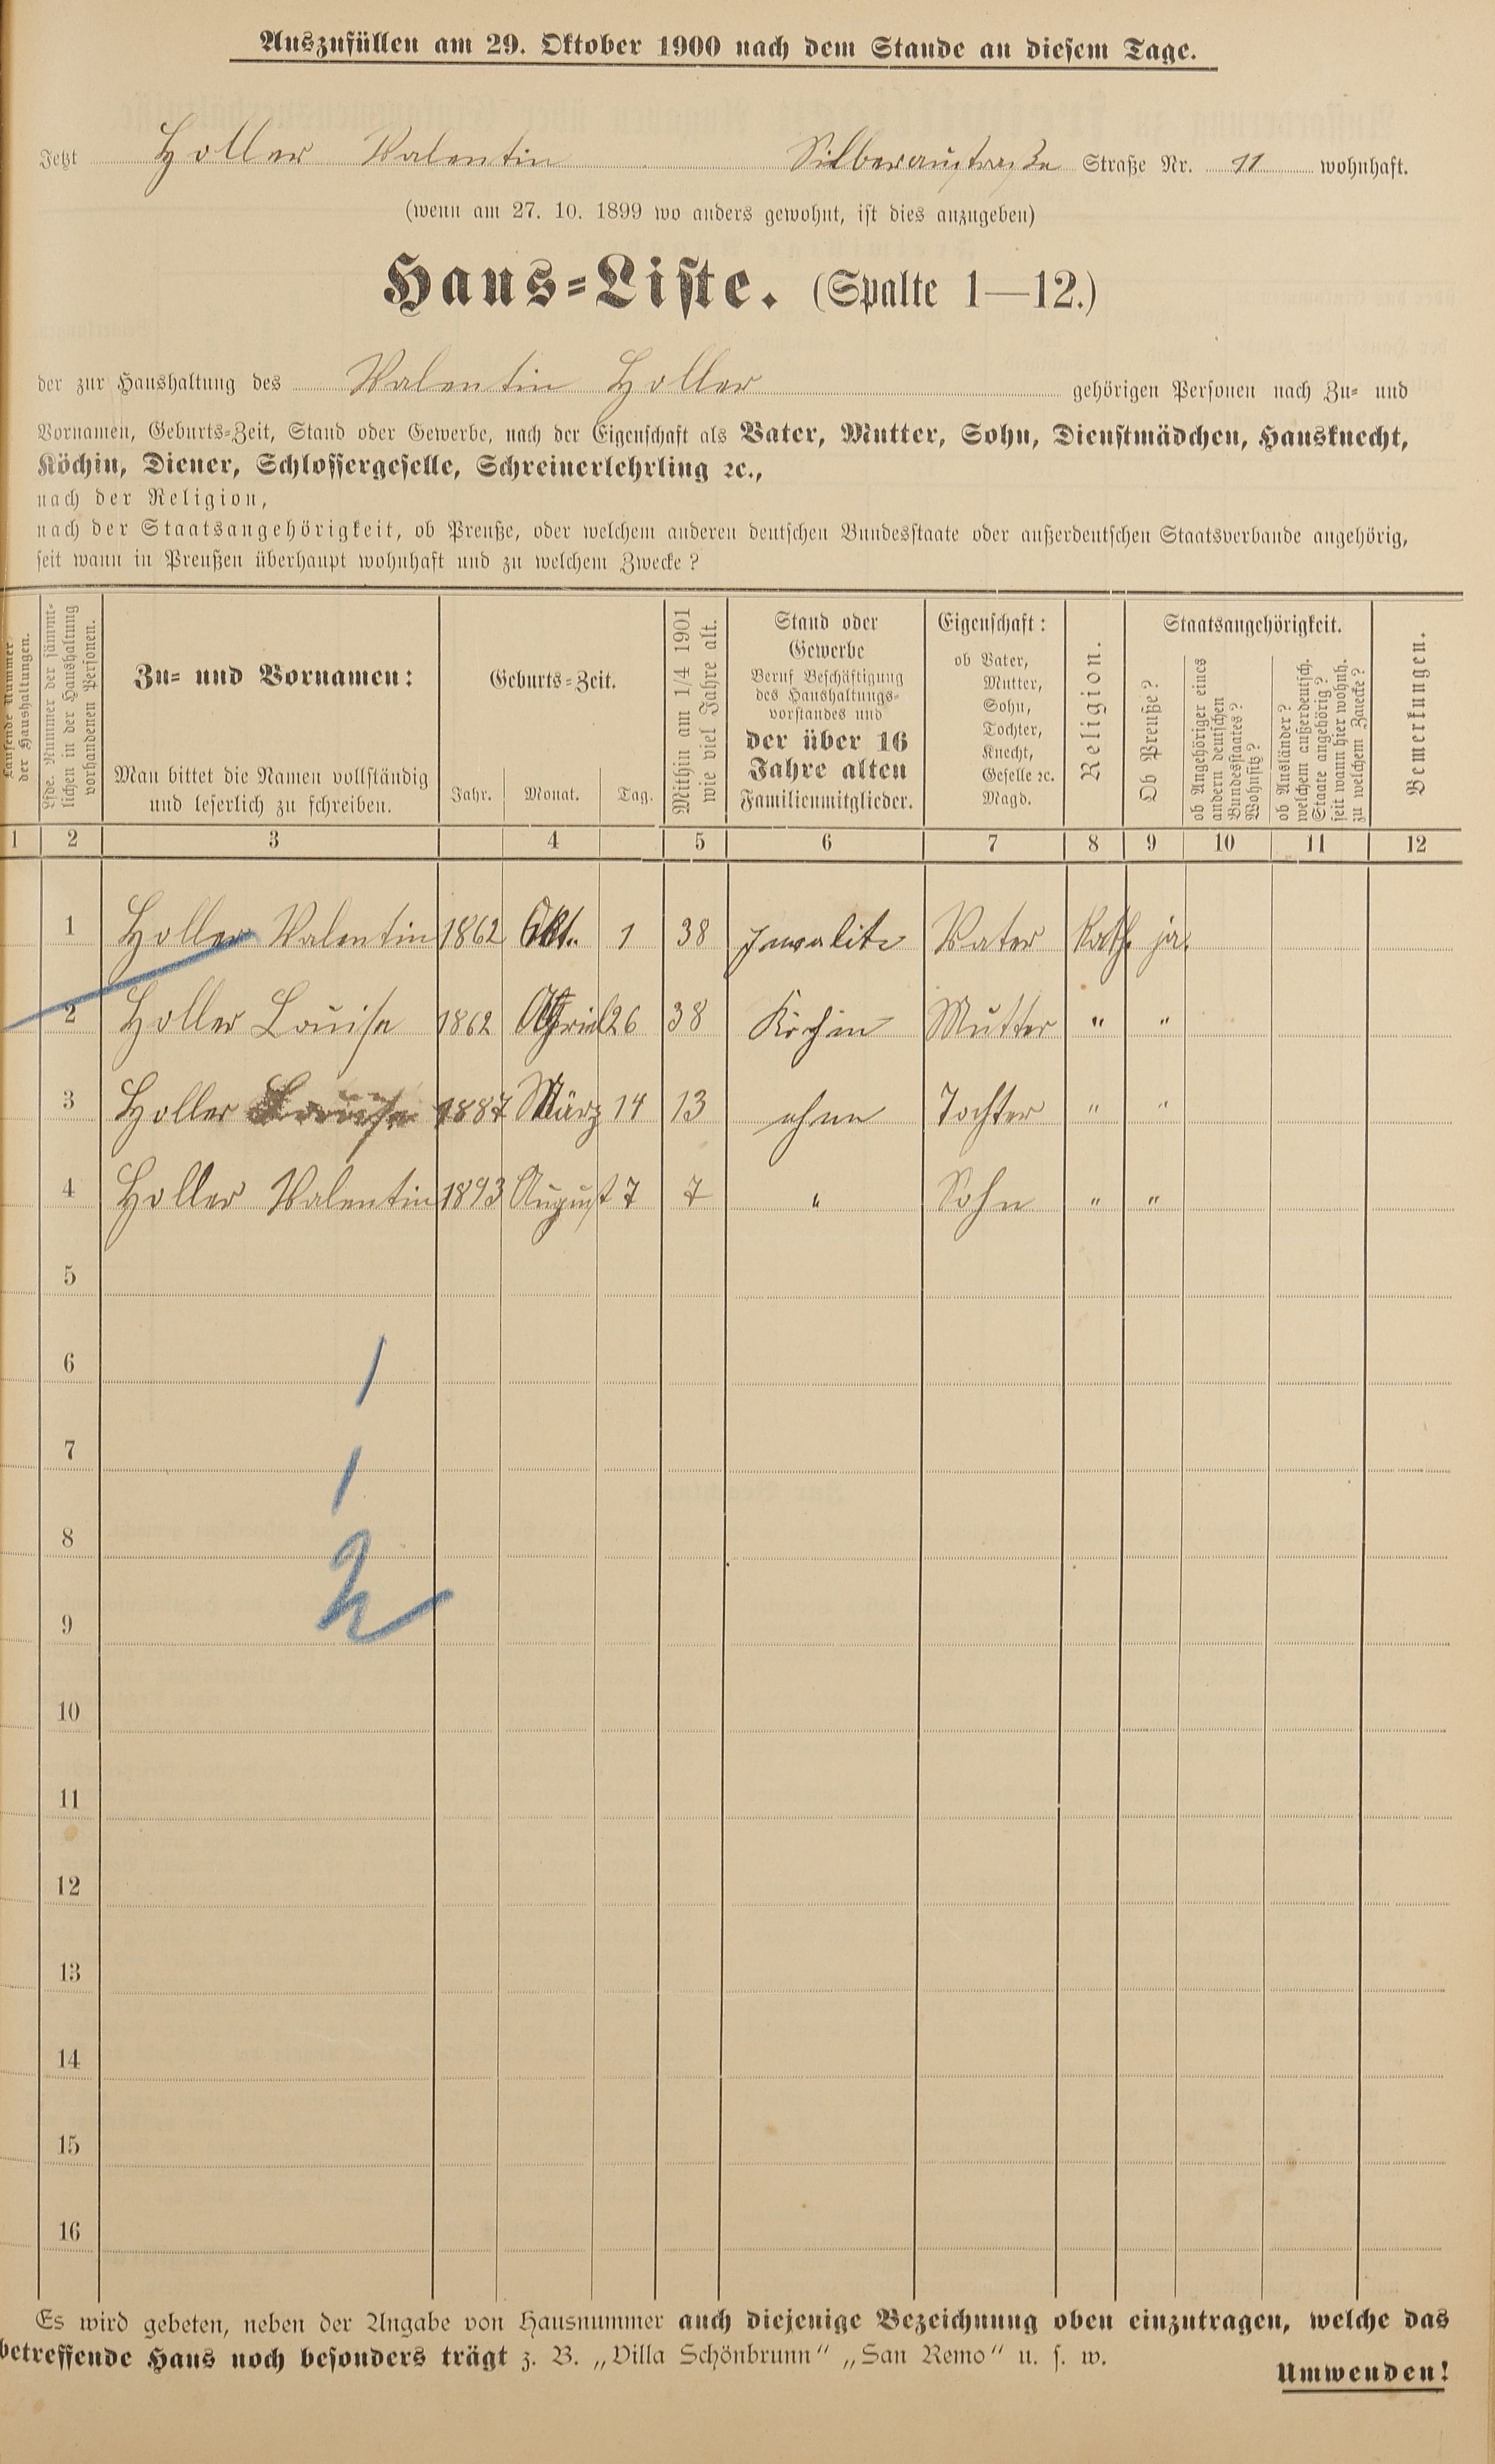 Auszufüllen am 29. Oktober 1900 nach dem Stande an diesem Tage.
Jetzt Holler Valentin Silberaustraße Straße Nr. 11 wohnhaft.
(wenn am 27. 10. 1899 wo anders gewohnt, ist dies anzugeben)
Haus-Liste. (Spalte 1—12.)
der zur Haushaltung des Valentin Holler gehörigen Personen nach Zu- und
Vornamen, Geburts-Zeit, Stand oder Gewerbe, nach der Eigenschaft als Vater, Mutter, Sohn, Dienstmädchen, Hausknecht,
Köchin, Diener, Schlossergeselle, Schreinerlehrling ꝛc.,
nach der Religion,
nach der Staatsangehörigkeit, ob Preuße, oder welchem anderen deutschen Bundesstaate oder außerdeutschen Staatsverbande angehörig,
seit wann in Preußen überhaupt wohnhaft und zu welchem Zwecke?
Laufende Nummer
der Haushaltungen.
Lfde. Nummer der sämmt-
lichen in der Haushaltung
vorhandenen Personen.
Zu- und Vornamen:
Man bittet die Namen vollständig
und leserlich zu schreiben.
Geburts-Zeit.
Jahr. Monat. Tag.
Mithin am 1/4 1901
wie viel Jahre alt.
Stand oder
Gewerbe
Beruf Beschäftigung
des Haushaltungs-
vorstandes und
der über 16
Jahre alten
Familienmitglieder.
Eigenschaft:
ob Vater,
Mutter,
Sohn,
Tochter,
Knecht,
Geselle ꝛc.
Magd.
Religion.
Staatsangehörigkeit.
Ob Preuße?
ob Angehöriger eines
andern deutschen
Bundesstaates?
Wohnsitz?
ob Ausländer?
welchem außerdeutsch.
Staate angehörig?
seit wann hier wohnh.
zu welchem Zwecke?
Bemerkungen.
1 2 3 4 5 6 7 8 9 10 11 12
1 Holler Valentin 1862 Okt. 1 38 Invalite Vater Kath. ja.
2 Holler Louise 1862 April 26 38 Köchin Mutter " "
3 Holler Louise 1887 März 14 13 ohne Tochter " "
4 Holler Valentin 1893 August 7 7 " Sohn " "
5
6
1
7
1
8
2
9
10
11
12
13
14
15
16
Es wird gebeten, neben der Angabe von Hausnummer auch diejenige Bezeichnung oben einzutragen, welche das
betreffende Haus noch besonders trägt z. B. „Villa Schönbrunn" „San Remo" u. s. w.
Umwenden!